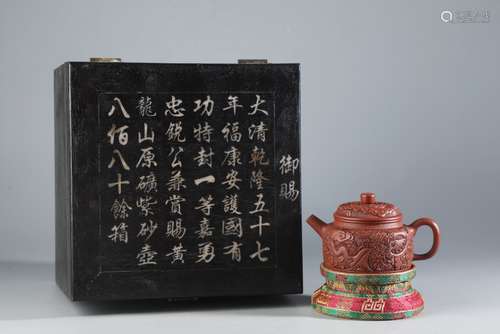 御賜
大清乾隆五十七
年福康安護國有
功特封一等嘉勇
忠銳公兼賞賜黃
龍山原礦紫砂壺
八佰八十餘箱